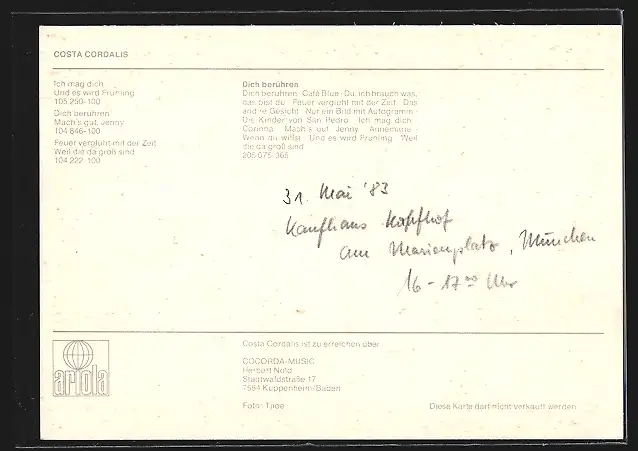 COSTA CORDALIS
Ich mag dich
Und es wird Frühling
105 250-100
Dich berühren
Mach's gut, Jenny
104 846-100
Feuer verglüht mit der Zeit
Weil die da groß sind
104 222-100
Dich berühren
Dich berühren · Café Blue · Du, ich brauch was,
das bist du · Feuer verglüht mit der Zeit · Das
and're Gesicht · Nur ein Bild mit Autogramm ·
Die Kinder von San Pedro · Ich mag dich ·
Corinna · Mach's gut, Jenny · Annemarie ·
Wenn du willst · Und es wird Frühling · Weil
die da groß sind
205 075-365
31. Mai '83
Kaufhaus Kaufhof
am Marienplatz, München
16 - 17 00 Uhr
ariola
Costa Cordalis ist zu erreichen über
COCORDA-MUSIC
Herbert Nold
Stadtwaldstraße 17
7554 Kuppenheim/Baden
Foto: Tjide
Diese Karte darf nicht verkauft werden